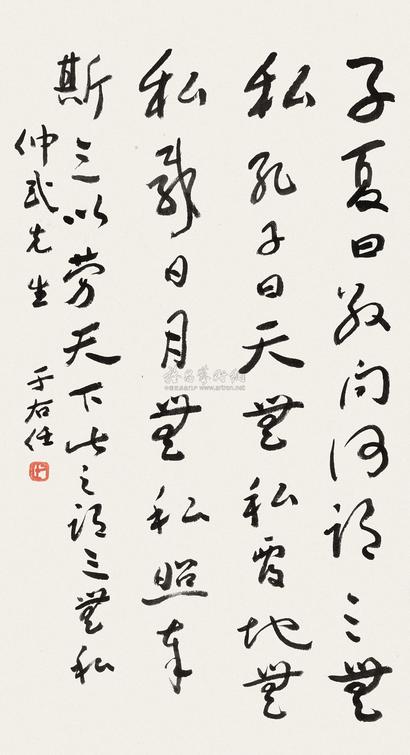 子夏曰敢问何谓三無
私孔子曰天無私覆地無
私載日月無私照奉
斯三以劳天下此之谓三無私
仲武先生
于右任